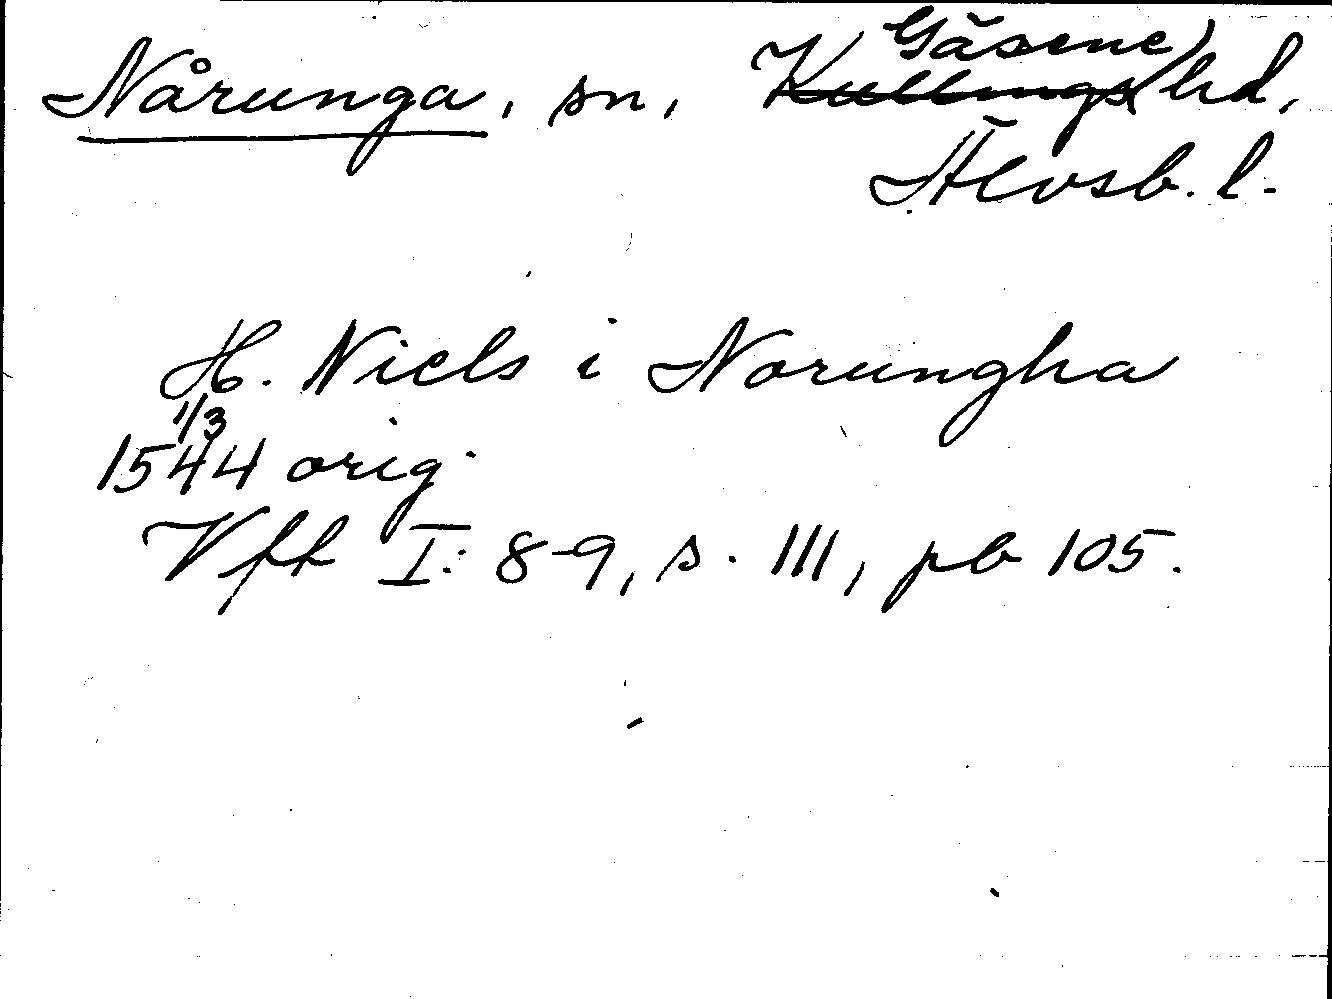 Nårunga, sn, Gäsene
Kullings hd,
Älvsb. l.
H. Niels i Norungha
1/3
1544 orig.
Vft I: 8-9, s. 111, pb 105.